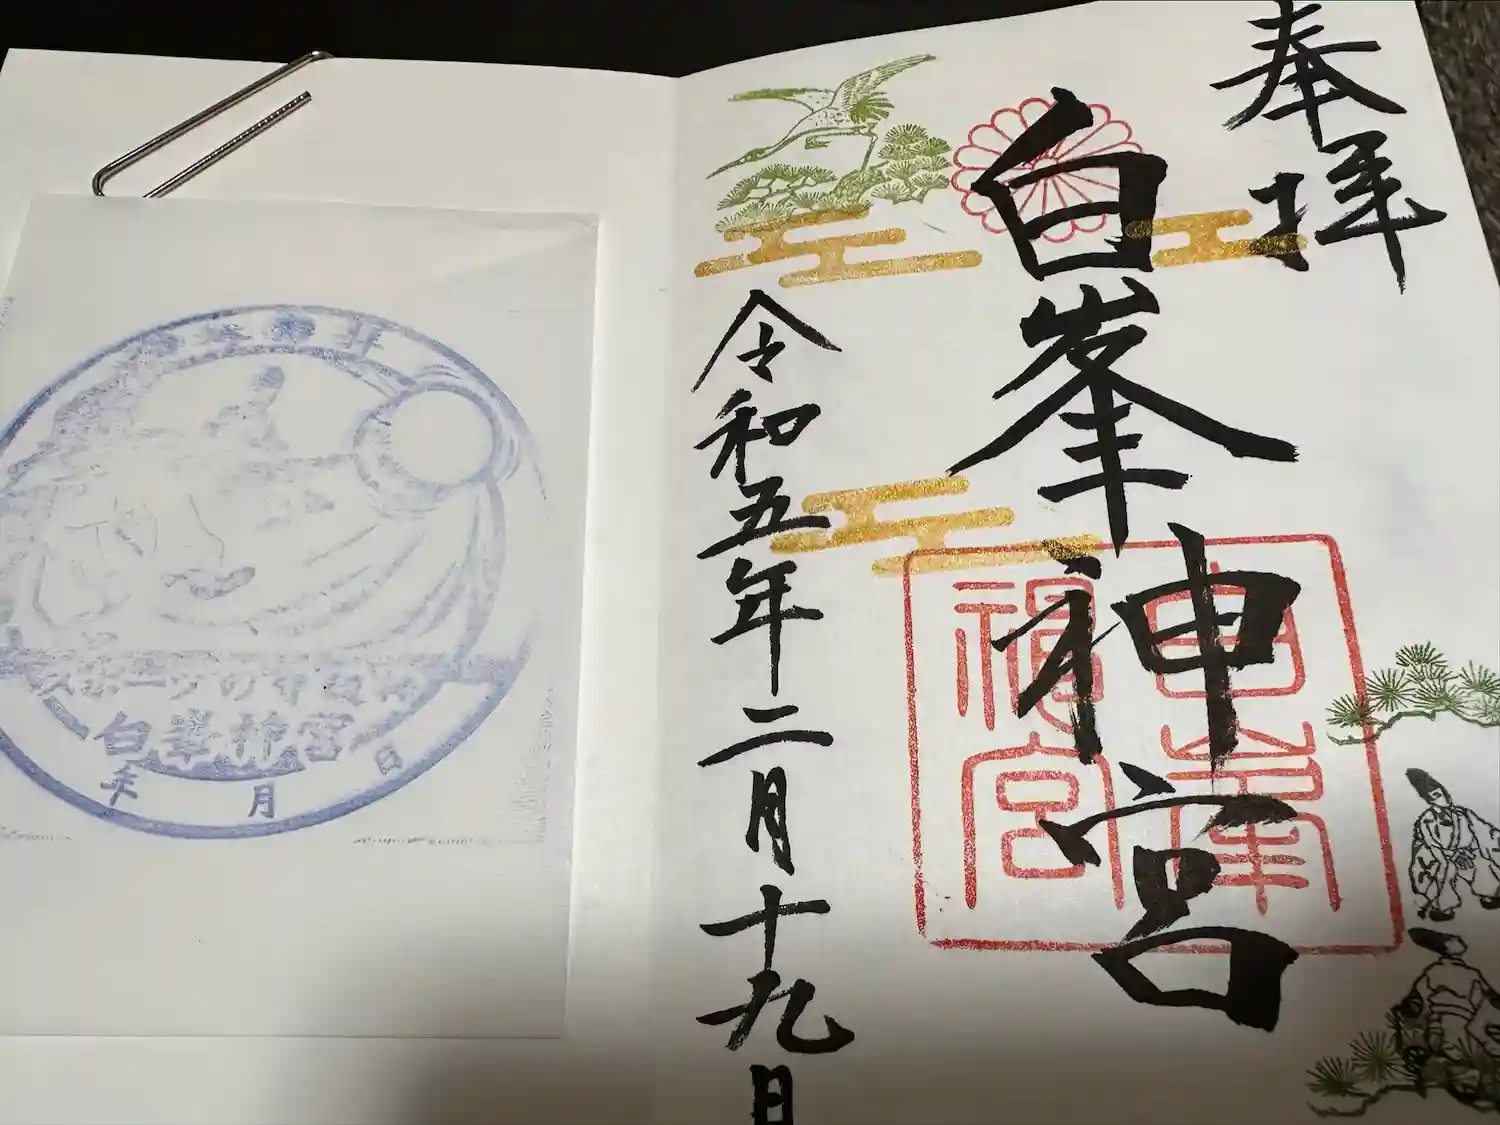 奉拝
白峯神宮
令和五年二月十九日
白峯
神宮
スポーツの守護神
白峯神宮
年 月 日